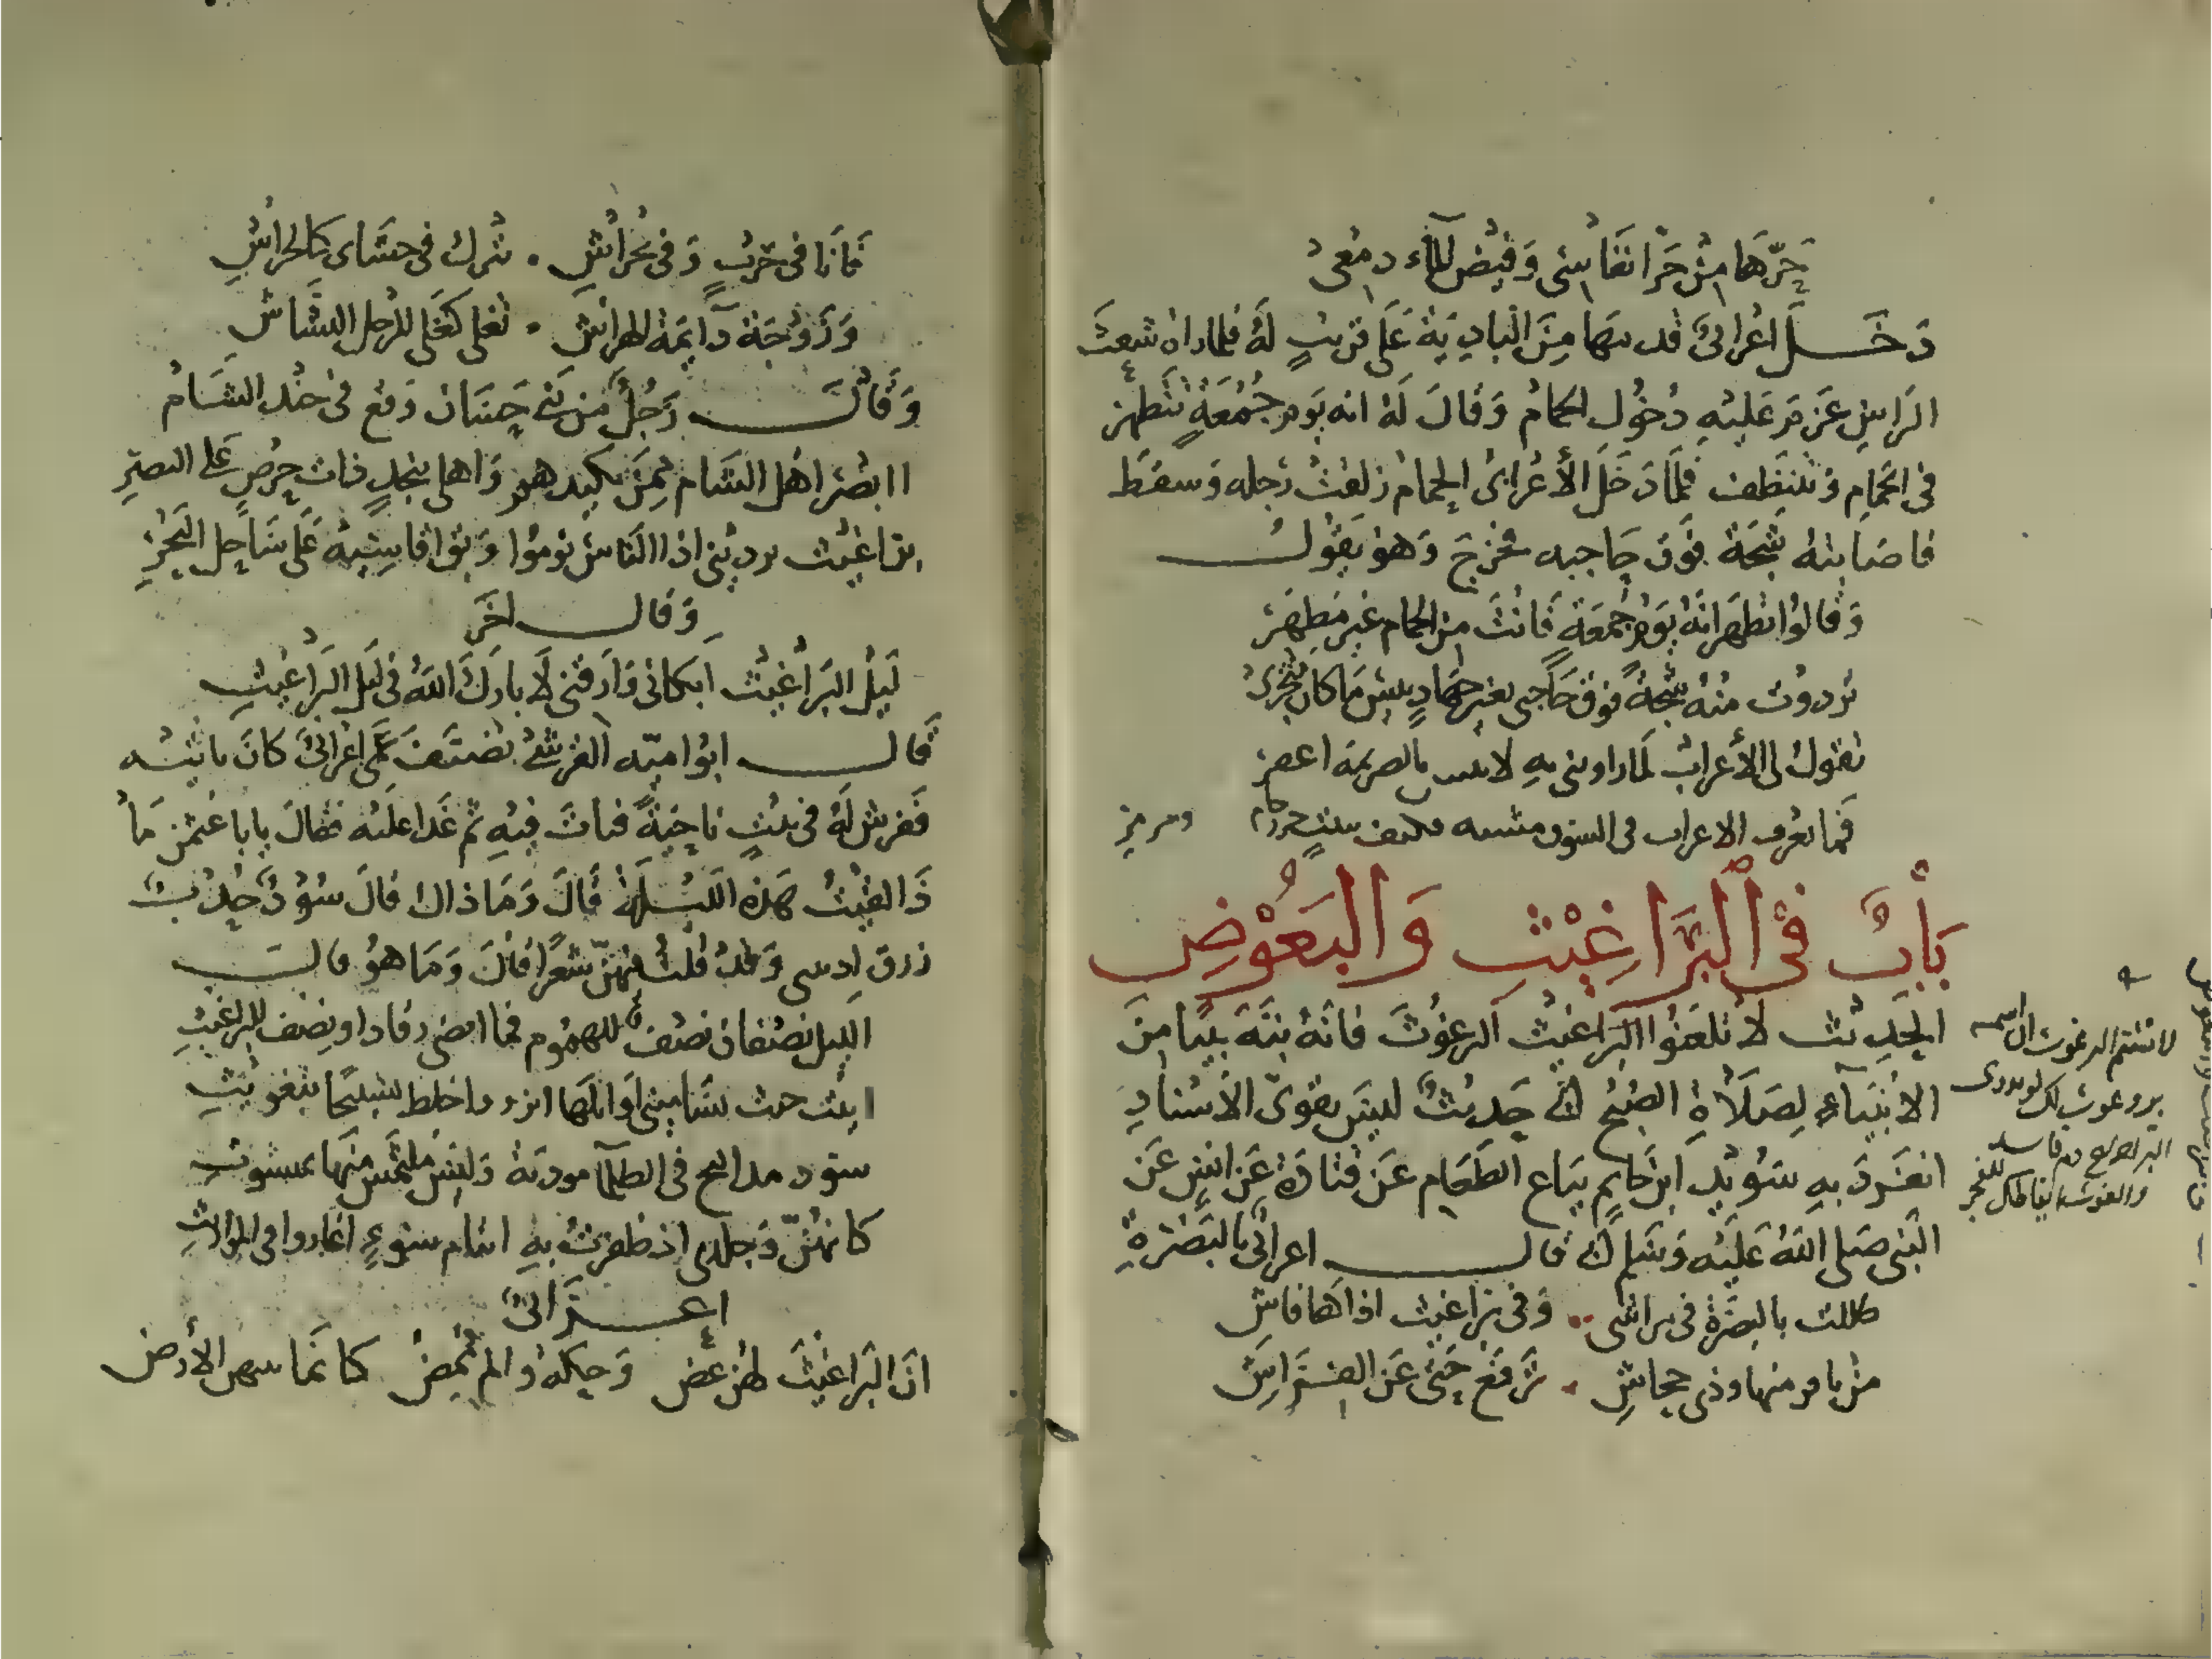 حَرّهَا مِنْ حَرّ انفَاسِى وَفيْض المآء دمْعى
دَخَـــل اعْرابىّ قد سها مِنَ الْبادِيَةِ عَلَى قريبٍ لَهُ فلما راه شَعِثَ
الرَاسِ عَزمَ عَليْهِ دُخُول الحمام وَقالَ لَهُ انه يَوم جُمُعَةٍ تتَطهر
فى الحمامِ وَتتنَظِف فلمَّا دَخَلَ الأعْرابىُ الحمام زلقتْ رَجله وَسقَط
فاصابتهُ شَجة فوَق حَاجبه فخرَجَ وَهوَ يَقوُلـــ
وَقالوُا تطهّر انَّهُ يَوْمُ جُمعَةٍ فَانْتَ مِنَ الحمام غير مطهّر
تردوت منْهُ شجَّةً فوق حَاجبى بغيرِ جهَادٍ بئس مَا كان مَتْجرى
تقول لى الأعراب لما راونى به لا بالصريمة اعفر
فَما تعرف الاعراب فى السوق مشيه فكيف ببيتٍ ومرمر
بَابٌ فى البَرَاغِيْثِ وَالبَعُوْضِ
الحَدِيْث لا تلعَنوُا البَراغيْث البرغوُثَ فانهُ نبَّهَ نبيًا مِنَ
الانبْيَآءِ لِصَلَاةِ الصُبح حَدِيثٌ ليسَ بقوىّ الاسْنَادِ
انفَرَدَ بهِ سُوَيْد ابن حاتم بيَاع الطَعَام عَن قتادَة عَن انسٍ عَن
النبى صَلى اللهُ عَليْه وَسَلم قالـــ اعرابىٌّ بالبَصْرَةِ
ظللت بالبصْرَة فى براش وَفى بَراغيث اذاهَا فاش
من نافر منها وذى جحاشِ تَرفعُ جَنبى عَن الفـراش
فَانَا فى حَربٍ وَفى نخراشِ تترك فى حشَاى كالخراشِ
وَزَوْجَة دآيمة الهراش تغلى كغلى المرجل النشَّاش
وَقالَـــ رَجُلٌ من بَنى حسَان وَقع فى جند الشَامْ
ا ابْصر اهْل الشَام وَاهلى بنجدٍ ذات حِرْصٍ عَلى النصرِ
براغيْث يردِيْنى اذا النَاسُ نوموُا وَبق اقاسِيْه عَلى سَاحِل البَحْرِ
وَقالـــ اخَر
لَيْل البَراغيْث اَبكانى وَارقنى لَا بارَكَ اللهُ فى لَيْل البَرَاغيْثِ
قالـــ ابوُ اميّه القرشىّ تضيَّفَ عمى اعرابىٌّ كانَ ياتيْه
فَفرش لَهُ فى بَيْتٍ ناحِيَةً فباتَ فيْهِ ثم غَدا عليْه فقالَ يابا عثمن مَا
ذَا لقيْتُ هَذه الليْلَةَ قَالَ وَمَا ذاك قالَ سُوُدٌ حُدْبٌ
زرق وَقد قلْتُ فيْهنّ شعرًا قالَ وَمَا هوُ قالـــ
الليل نصْفان نصْف للهموُم فما اقضى رقادا ونِصْف للبراغيْثِ
ابيْت حيث تسَامينى اَوايلهَا انزو واخلط تسْبيْحًا بتغويْثِ
سود فى الظلمآ موذية وَليْسَ ملتمَس منْهَا بمشبوت
كانهُنّ وَجلدى اذ ظفرتُ بهِ ايتام سوءٍ اغاروا فى المواريْثِ
اعـــرابىّ
انَ البَراغيْثَ لهن عَضّ وَحِكة والم مُمِضّ كانمَا الأرض